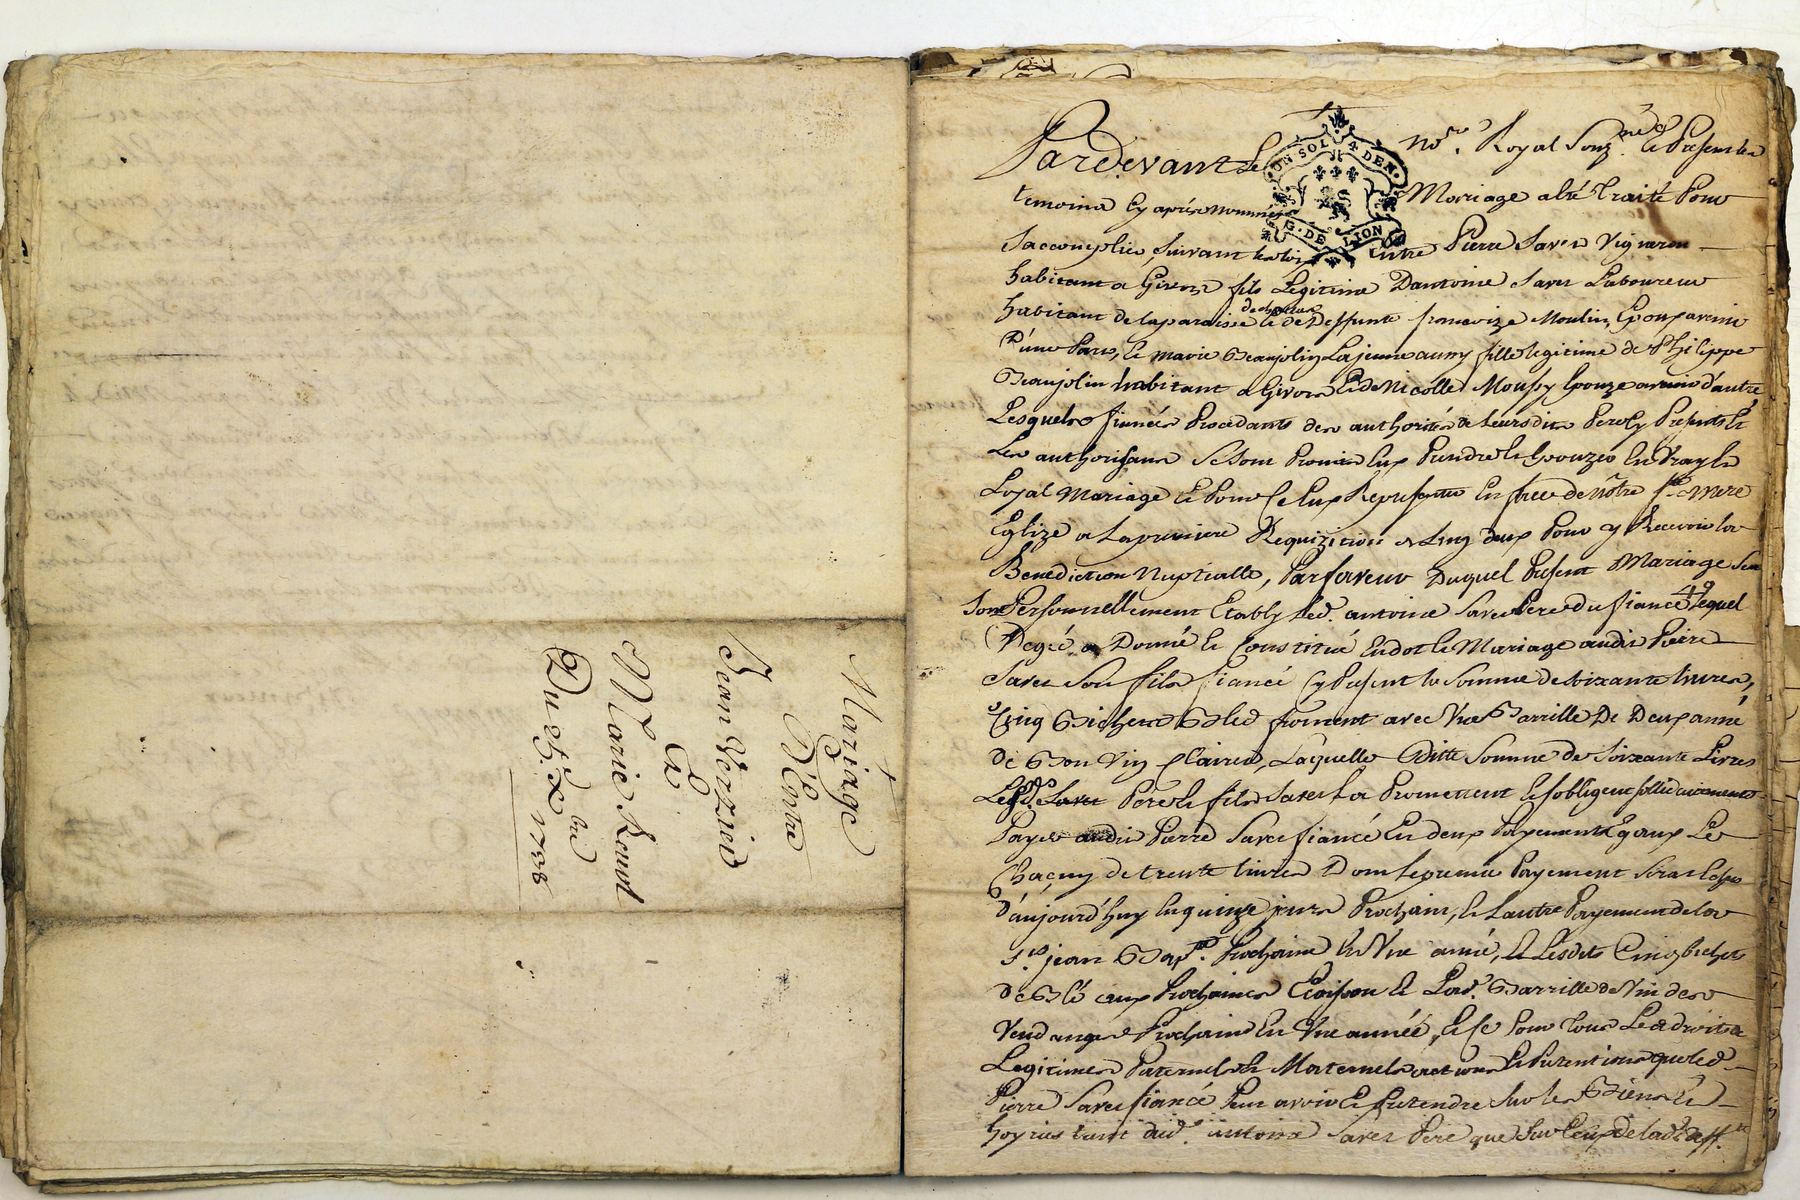 Mariage
D'Entre
Jean Verzieu
Et
Marie Remot
Du 25. 1738
Pardevant Le no.re Royal Souz.né Et Presents Les
ON SOL 4 DEN.
G. DE LION
temoins Cy après nommés Mariage a été traité Pour
Saccomplir, Suivant les loix Entre Pierre Saves Vigneron
habitant a Givors fils Legitime Dantoine Saves Laboureur
habitant de laparoisse de Et de Deffunte francoize Moulin, Epoux avenir
D'une Part, Et marie Beaujolin Lajeune aussy fille legitime de Philippe
Beaujolin habitant a Givors Et de Nicolle Moussy Epouze avenir d'autre
Lesquels fiancés Procedants des authorités de Leursdits Peres Cy Presents Et
Les authorisans Se Sont Promis Eux Prendre Et Epouzer En Vray Et
Loyal Mariage Et Pour Ce Eux Representer En face de nôtre s.te mere
Eglize a La premiere Requizition de Lun deux Pour y Recevoir la
Benediction Nuptialle, Par faveur Duquel Present Mariage Sen
Sont Personnellement Etably Led. antoine Saves Pere du fiancé Lequel
Degré a Donné Et Constitué En dot Et Mariage audit Pierre
Saves Son fils fiancé Cy Present la Somme de soixante livres,
Cinq Bichets Bled froment avec Une Barrille De Deux anné
de Bon Vin Clairet, Laquelle ditte Somme de Soixante Livres
Lesd. Saves Pere Et fils Saves La Promettent Et Sobligent sollidairement
Payer audit Pierre Saves fiancé En deux Payements Egaux De
Chacun de trente livres Dont Le premier Payement Sera
D'aujourd'huy En quinze jours Prochain, Et Lautre Payement de la
S.t jean Bap.te Prochaine En Une anné, Et Lesdits Cinq bichets
De Blé aux Prochaines Et Lad. Barrille de Vin des
Vendanges Prochaine En Une année, Et Ce Pour tous Les droits
Legitimes Paternels Et Maternels Et Pretentions que led.
Pierre Saves fiancé Peut avoir Et Pretendre Sur les Biens Et
hoyries tant dud. antoine Saves Pere que Sur Ceux de lad. deff.te